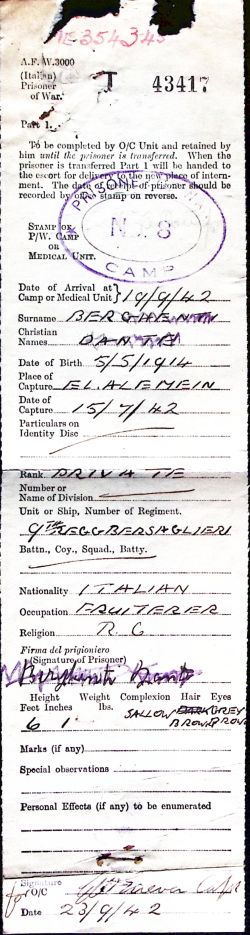 ME-354345
A.F.W.3000
(Italian)
Prisoner
of War.
I 43417
Part 1.
To be completed by O/C Unit and retained by
him until the prisoner is transferred. When the
prisoner is transferred Part 1 will be handed to
the escort for delivery to the new place of intern-
ment. The date of receipt of prisoner should be
recorded by office stamp on reverse.
STAMP OF
P/W. CAMP
OR
MEDICAL UNIT.
PRISONER
No. 8
CAMP
Date of Arrival at
Camp or Medical Unit } 19/9/42
Surname BERGHENTI
Christian
Names DANTE
Date of Birth 5/5/1914
Place of
Capture EL ALEMEIN
Date of
Capture 15/7/42
Particulars on
Identity Disc
Rank PRIVATE
Number or
Name of Division
Unit or Ship, Number of Regiment.
9TH REGG BERSAGLIERI
Battn., Coy., Squad., Batty.
Nationality ITALIAN
Occupation FRUITERER
Religion R. C
Firma del prigioniero
(Signature of Prisoner)
Height Weight Complexion Hair Eyes
Feet Inches lbs.
6 1 SALLOW DARK GREY
BROWN BROWN
Marks (if any)
Special observations
Personal Effects (if any) to be enumerated
Signature
for O/C
Date 23/9/42